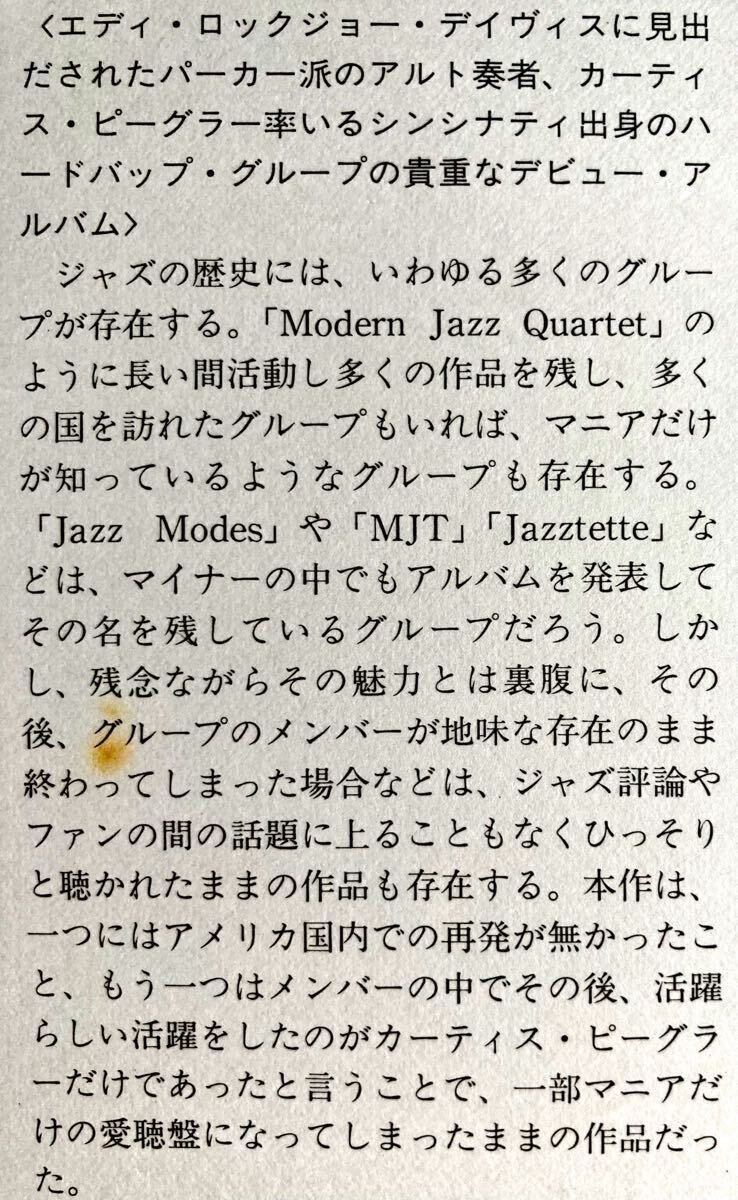 〈エディ・ロックジョー・デイヴィスに見出
だされたパーカー派のアルト奏者、カーティ
ス・ピーグラー率いるシンシナティ出身のハ
ードバップ・グループの貴重なデビュー・ア
ルバム〉
　ジャズの歴史には、いわゆる多くのグルー
プが存在する。「Modern Jazz Quartet」の
ように長い間活動し多くの作品を残し、多く
の国を訪れたグループもいれば、マニアだけ
が知っているようなグループも存在する。
「Jazz Modes」や「MJT」「Jazztette」な
どは、マイナーの中でもアルバムを発表して
その名を残しているグループだろう。しか
し、残念ながらその魅力とは裏腹に、その
後、グループのメンバーが地味な存在のまま
終わってしまった場合などは、ジャズ評論や
ファンの間の話題に上ることもなくひっそり
と聴かれたままの作品も存在する。本作は、
一つにはアメリカ国内での再発が無かったこ
と、もう一つはメンバーの中でその後、活躍
らしい活躍をしたのがカーティス・ピーグラ
ーだけであったと言うことで、一部マニアだ
けの愛聴盤になってしまったままの作品だっ
た。